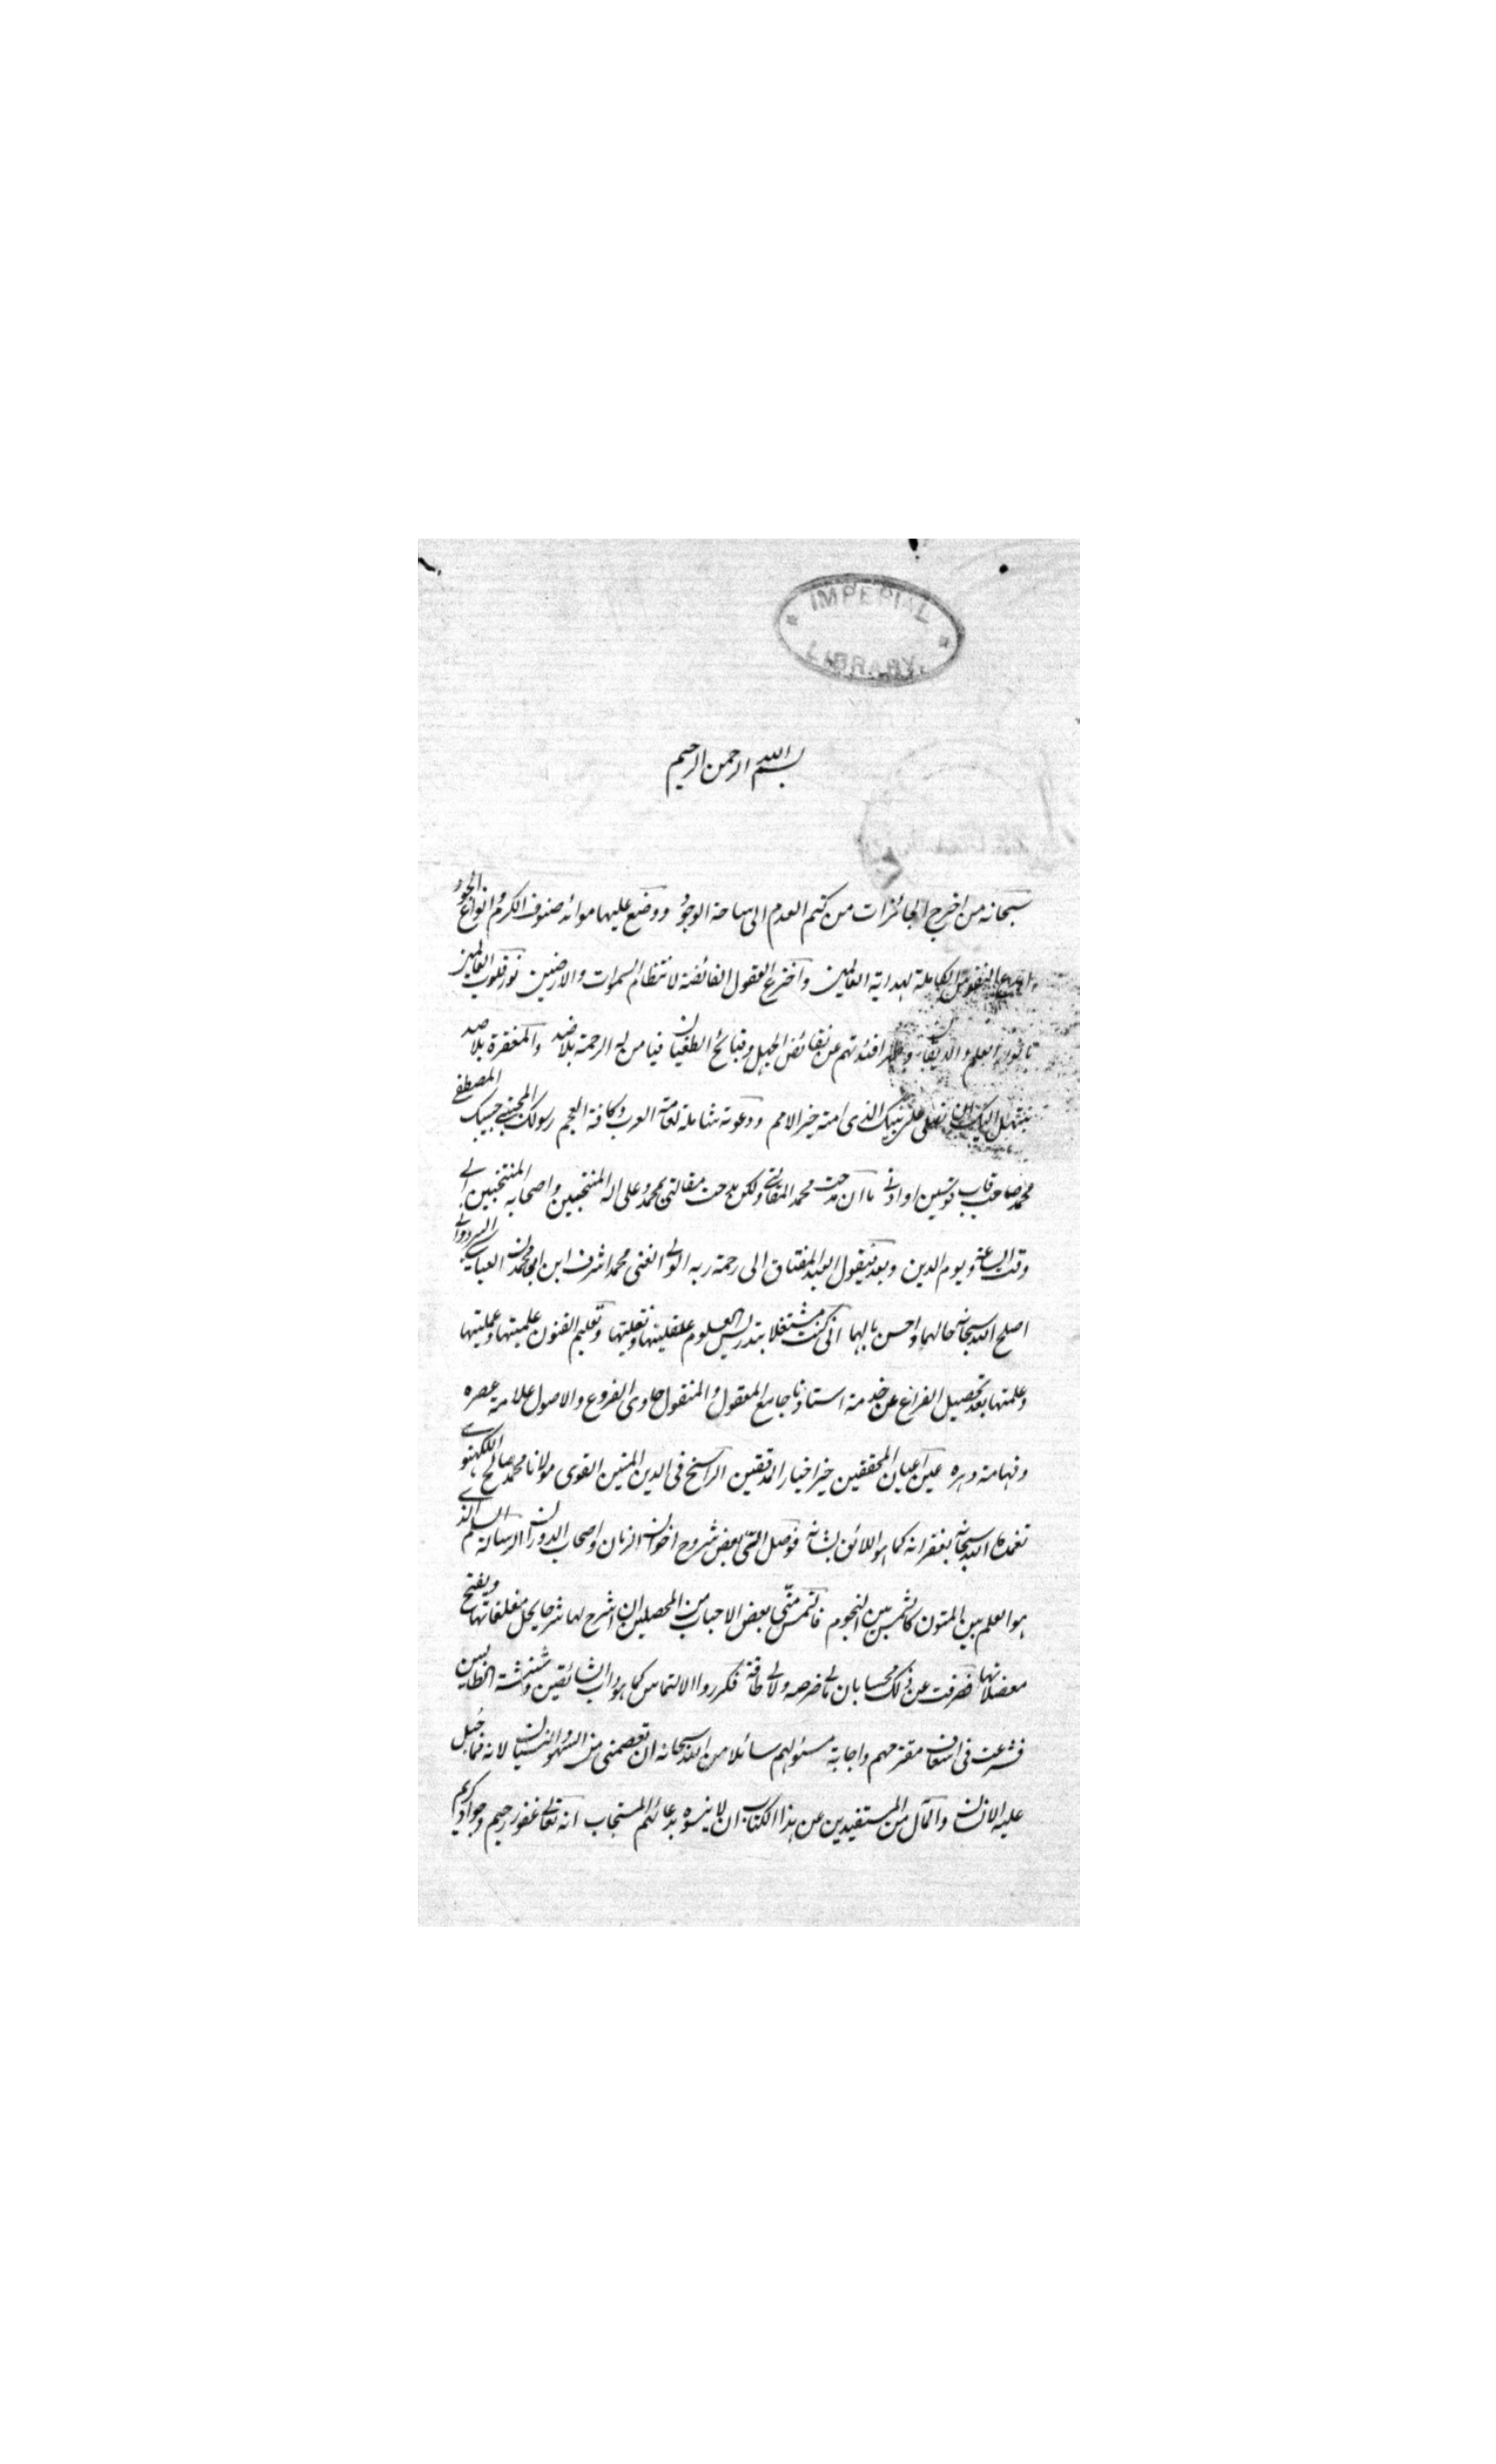 IMPERIAL
LIBRARY.
بسم الله الرحمن الرحيم
سبحانه من اخرج الجائزات من كتم العدم الى ساحة الوجود ووضع عليها موائد صنوف الكرم وانواع الجود
النفوس الكاملة لهداية العالمين واخترع العقول الفائضة لانتظام السموات والارضين نور قلوب العالمين
بانوار العلم افئدتهم عن نقائض الجهل وقبائح الطغيان فيا من له الرحمة بلا ضد والمغفرة بلا صد
نبتهل اليك ان نصلى على نبيك الذى امته خير الامم ودعوته شاملة لعامة العرب وكافة العجم رسولك المجتبى حبيبك المصطفى
محمد صاحب قاب قوسين او ادنى ما ان مدحت محمدا بمقالتى ولكن مدحت مقالتى بمحمد وعلى اله المنتجبين واصحابه المنتخبين الى
وقت الساعة ويوم الدين وبعد فيقول العبد المفتاق الى رحمة ربه الولى الغنى محمد اشرف ابن محمد العباسى
اصلح الله سبحانه حالهما واحسن بالهما انى كنت مشتغلا بتدريس العلوم عقليتها ونقليتها وتعليم الفنون علميتها وعمليتها
وعلمتها بعد تحصيل الفراغ عن خدمة استاذنا جامع المعقول والمنقول حاوى الفروع والاصول علامة عصره
وفهامة دهره عين اعيان المحققين خير اخيار المدققين الراسخ فى الدين المتين القوى مولانا محمد صالح اللكهنوى
تغمده الله سبحانه بغفرانه كما هو اللائق بشانه فوصل الىّ بعض شروح اخوان الزمان واصحاب الدوران الرسالة السلم الذى
هو العلم بين المتون كالشمس بين النجوم فالتمس منّى بعض الاحباب من المحصلين ان اشرح لها شرحا يحل مغلقاتها ويفتح
معضلاتها فصرفت عن ذلك محسابا بان مالى فرصة ولا لى طاقة فكرروا الالتماس كما هو داب الشائقين وشنشنة الطالبين
فشرعت فى اسعاف مقترحهم واجابة مسئولهم سائلا من الله سبحانه ان تعصمنى من السهو والنسيان لانه مما جُبل
عليه الانسان والمآمل من المستفيدين عن هذا الكتاب ان لا ينسوه بدعائهم المستجاب انه تعالى غفور رحيم وجواد كريم